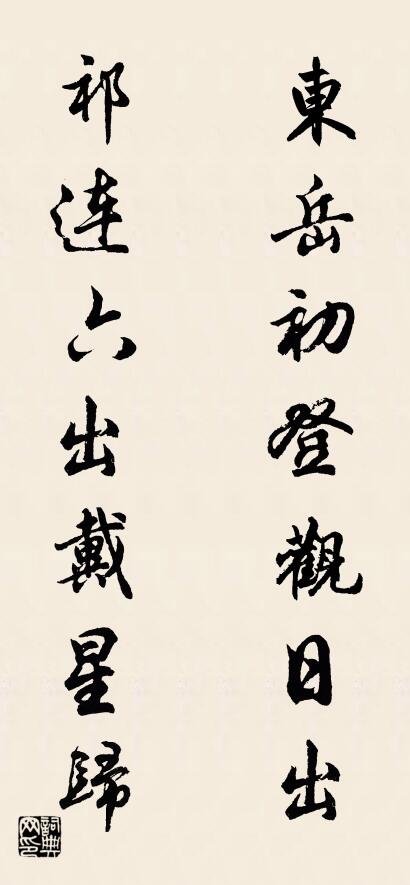 東岳初登觀日出
祁連六出戴星歸
詞典网印